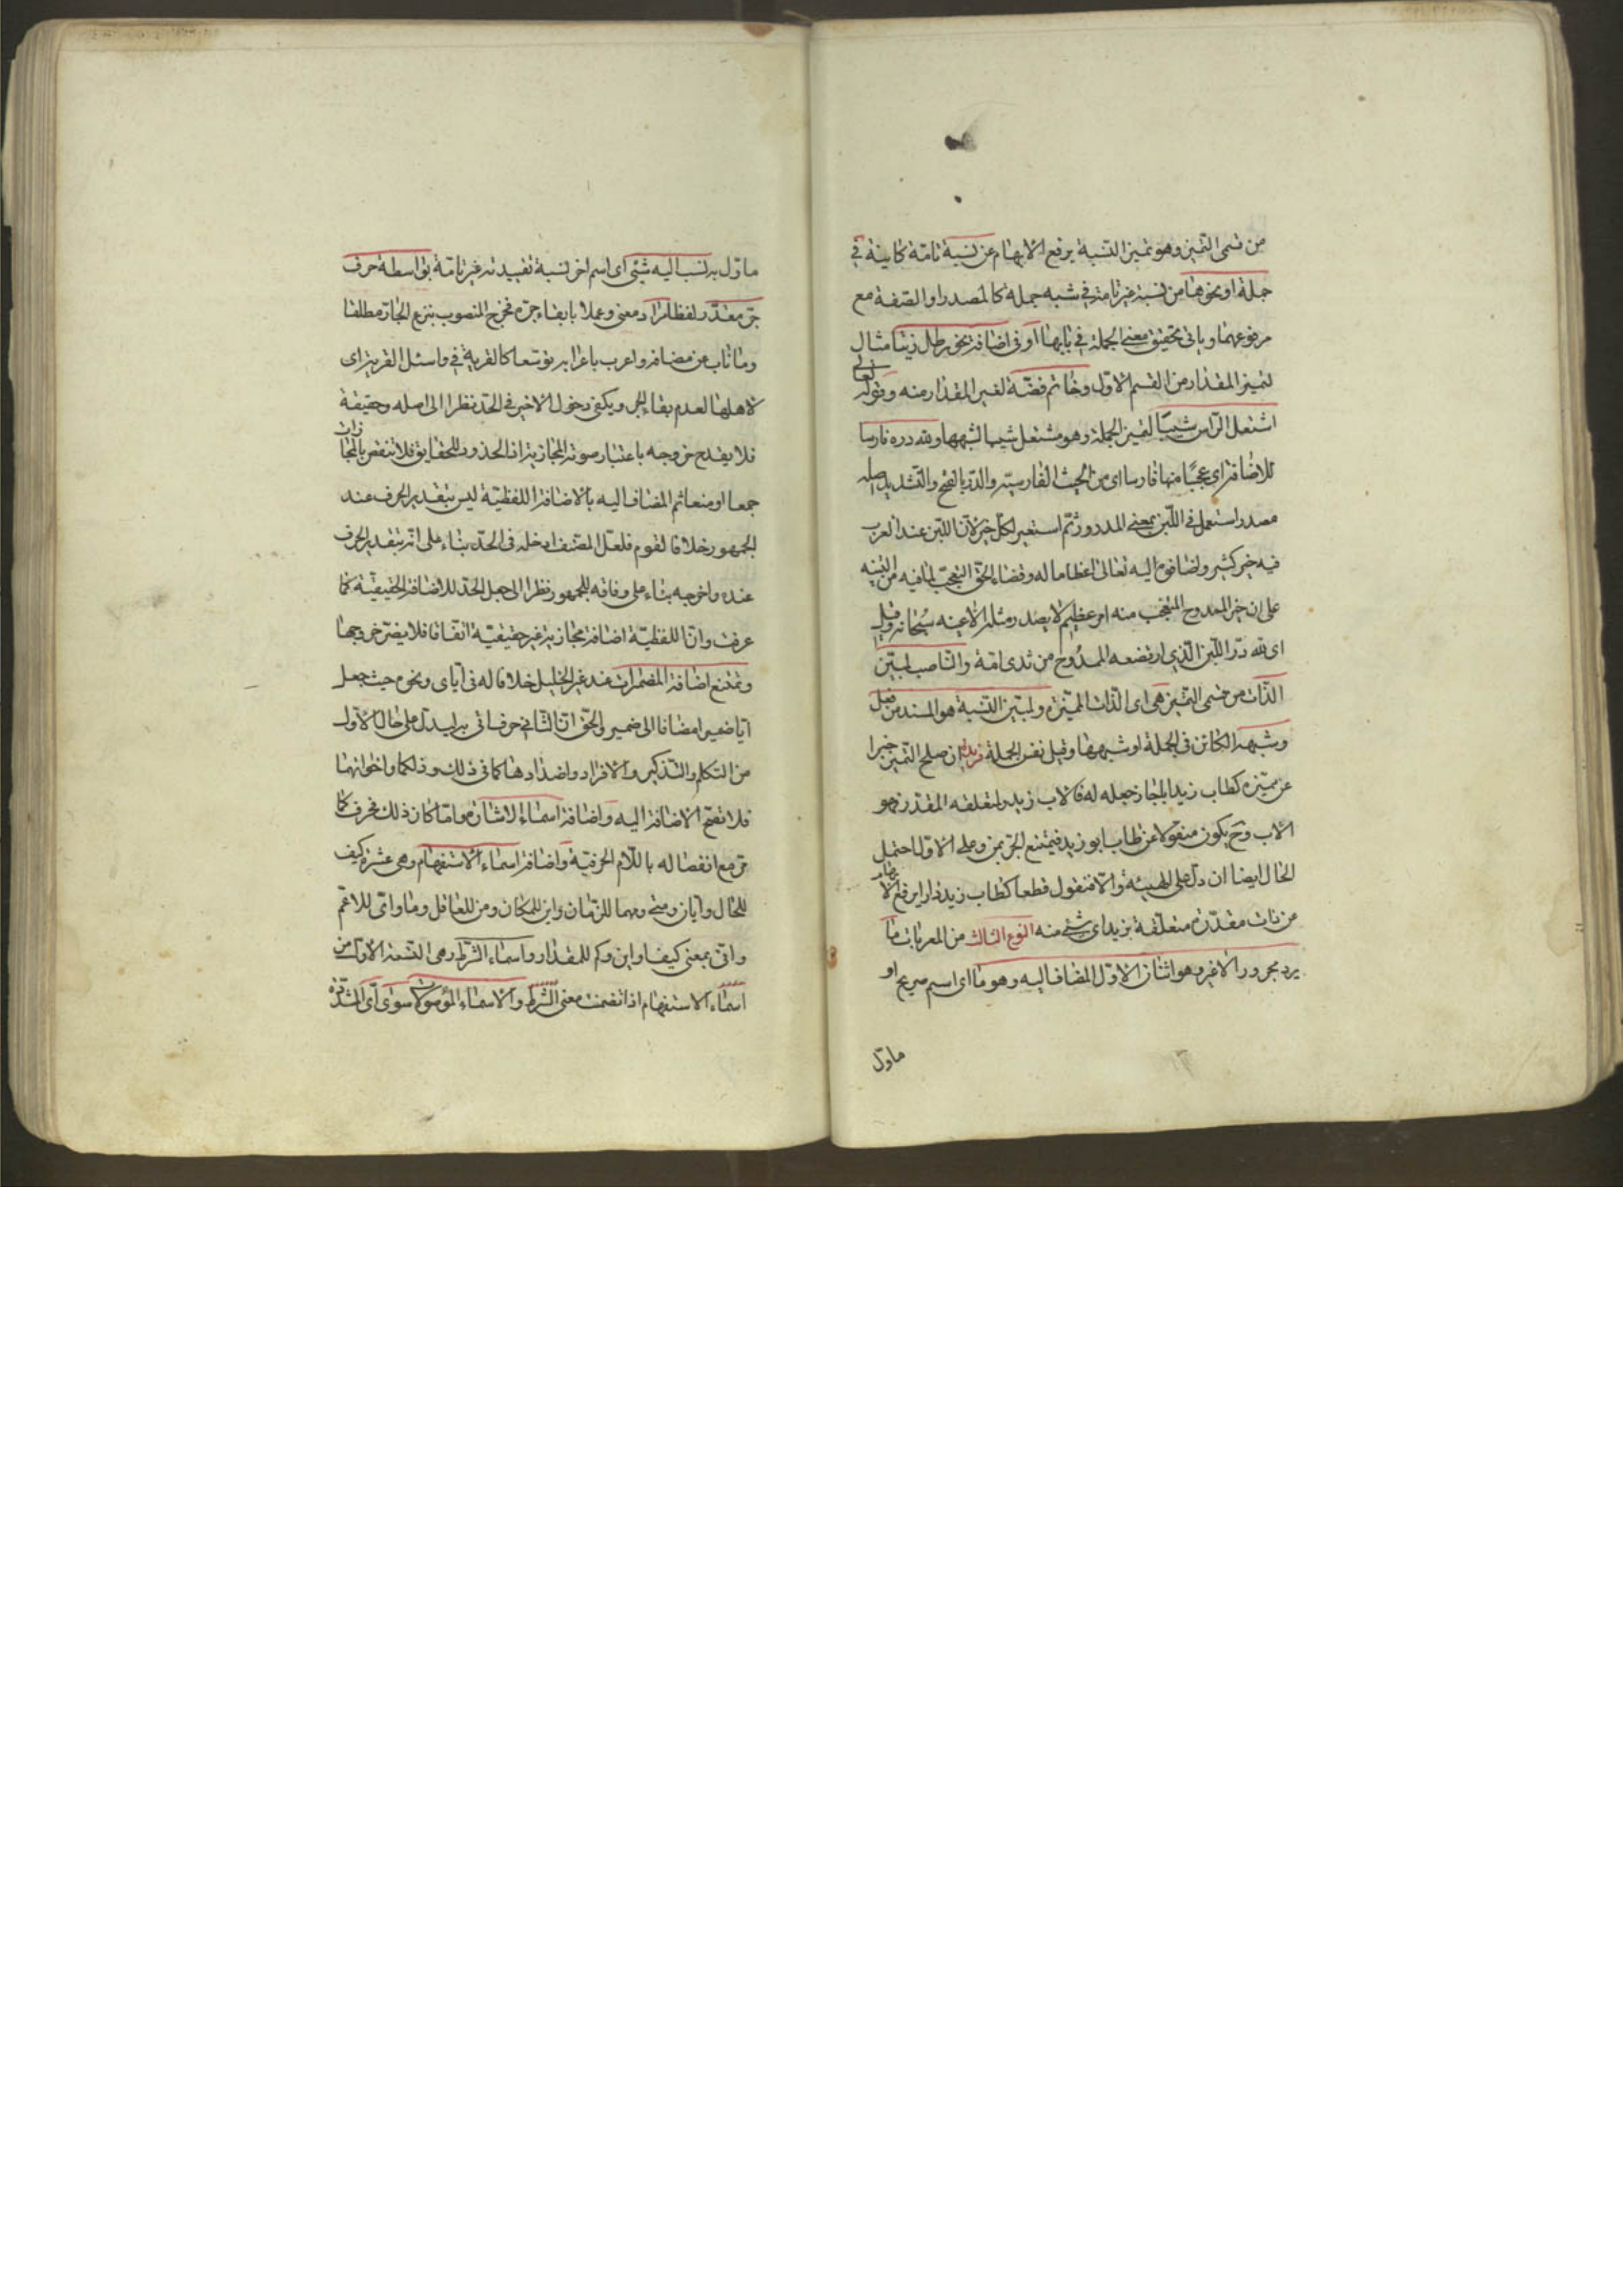 من قسمى التميز وهو تميز النسبة يرفع الابهام عن نسبة تامة كاينة فى
جملة او نحوها من نسبة غير تامة فى شبه جملة كالمصدر او الصفة مع
مرفوعهما وياتى تحقيق معنى الجملة فى بابها او فى اضافة نحو رطل زيتا مثال
لتميز المقدار من القسم الاول وخاتم فضة لغير المقدار منه وقوله تعالى
اشتعل الراس شيبا لتميز الجملة وهو مشتعل شيبا لشبهها ولله دره فارسا
للاضافة اى عجبا منها فارسا اى من حيث الفارسية والدر بالفتح والتشديد اصله
مصدر استعمل فى اللبن بمعنى المدرور ثم استعير لكل خير لان اللبن عند العرب
فيه خير كثير واضافوه اليه تعالى اعظاما له وقضاء لحق التعجب لما فيه من التنبيه
على ان خير الممدوح المتعجب منه امر عظيم لا يصدر مثله الا عنه سبحانه وقيل
اى لله در اللبن الذى ارتضعه الممدوح من ثدى امه والناصب لمبين
الذات من قسمى التميز هى اى الذات المميزة ولمبين النسبة هو المسند من فعل
وشبهه الكائن فى الجملة او شبهها وقيل نفس الجملة ان صلح التميز خبرا
عن مميزه كطاب زيد ابا جاز جعله له فالاب زيد ولمتعلقه المقدر فهو
الاب وح يكون منقولا عن طاب ابو زيد فيمتنع الجر بمن وعلى الاول احتمل
الحال ايضا ان دل على الهيئة والا فنقول قطعا كطاب زيد دارا يرفع الابهام
من ذات مقدرة متعلقة بزيد اى شئ منه النوع الثالث من المعربات ما
يرد مجرورا لا غير وهو اثنان الاول المضاف اليه وهو ما اى اسم صريح او
ماول
ماول به نسب اليه شئ اى اسم اخر نسبة تقييدية غير تامة بواسطة حرف
جر مقدر لفظا مراد معنى وعملا بابقاء جره فخرج المنصوب بنزع الجار مطلقا
وما ناب عن مضافه واعرب باعرابه توسعا كالقرية فى واسئل القرية اى
لاهلها لعدم بقاء الجر ويكفى دخول الاخير فى الحد نظرا الى اصله وحقيقة
فلا يقدح خروجه باعتبار صورته المجازية اذ الحدود للحقايق فلا تنقض بالمجازات
جمعا او منعا ثم المضاف اليه بالاضافة اللفظية ليس بتقدير الحرف عند
الجمهور خلافا لقوم فلعل المصنف ادخله فى الحد بناء على انه بتقدير الحرف
عنده واخرجه بناء على وفاقه للجمهور نظرا الى جعل الحد للاضافة الحقيقية كما
عرفت وان اللفظية اضافة مجازية غير حقيقية اتفاقا فلا يضر خروجها
وتمتنع اضافة المضمرات عند غير الخليل خلافا له فى اياى ونحوه حيث جعل
ايا ضميرا مضافا الى ضمير والحق ان الثانى حرف اتى به ليدل على حال الاول
من التكلم والتذكير والافراد واضدادها كما فى ذلك وذلكما واخواتهما
فلا تصح الاضافة اليه واضافة اسماء الاشارة اما ما كان ذلك فحرف كما
مر مع انفصاله باللام الحرفية واضافة اسماء الاستفهام وهى عشرة كيف
للحال وايان ومتى ومهما للزمان واين للمكان ومن للعاقل وما واى للاعم
وانى بمعنى كيف واين وكم للمقدار واسماء الشرط وهى التسعة الاول من
اسماء الاستفهام اذا تضمنت معنى الشرط والاسماء الموصولة سوى اى المشددة